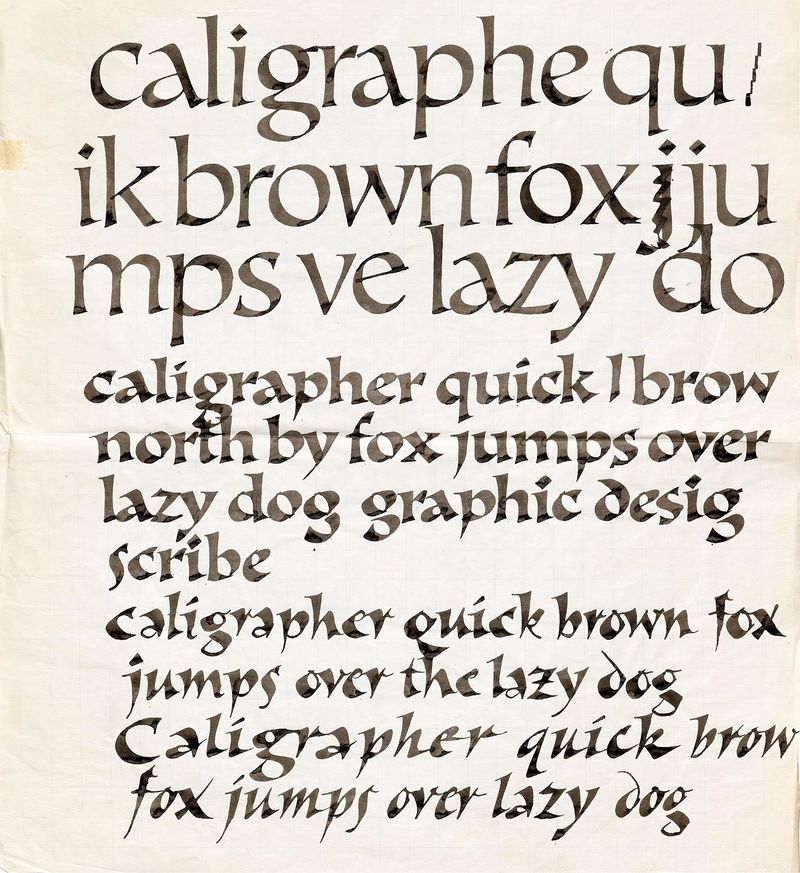 caligraphe qu
ik brown fox j ju
mps ve lazy do
caligrapher quick l brow
north by fox jumps over
lazy dog graphic desig
scribe
caligrapher quick brown fox
jumps over the lazy dog
Caligrapher quick brow
fox jumps over lazy dog